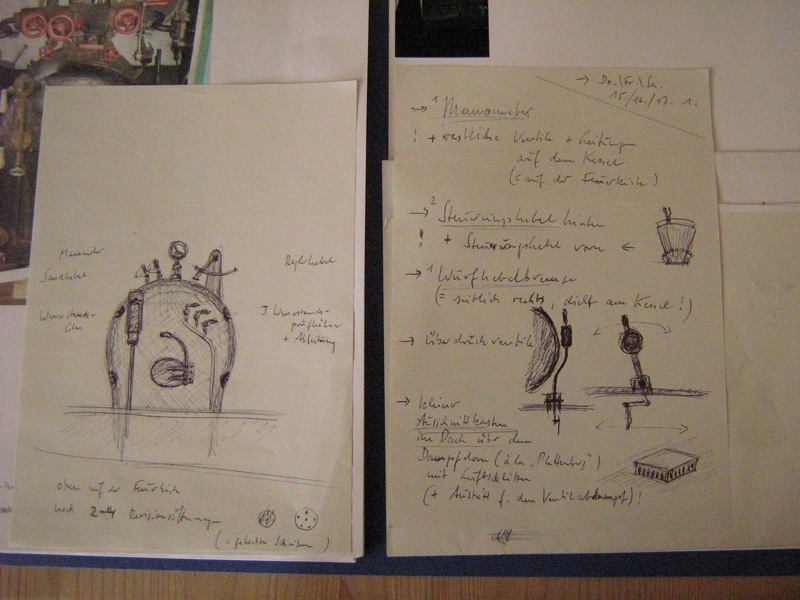 Manometer
Sandhebel
Wasserstands-
Glas
Reglerhebel
3 Wasserstands-
prüfhähne
+ Ableitung
oben auf der Feuerkiste
noch 2-4 Revisionsöffnungen
(= gelochte Scheiben)
→ Do.\Fr.\Sa.
15./16./17. 1.
→ 1 Manometer
! + restliche Ventile + Leitungen
auf dem Kessel
(= auf der Feuerkiste)
→ 2 Steuerungshebel hinten
! + Steuerungshebel vorn ←
→ 1 Wurfhebelbremse
(= seitlich rechts, dicht am Kessel!)
→ Überdruckventile
→ kleiner
Aufschnittkasten
im Dach über dem
Dampfdom (à la „Plettenberg")
mit Luftschlitzen
(+ Austritt f. den Ventilabdampf)!